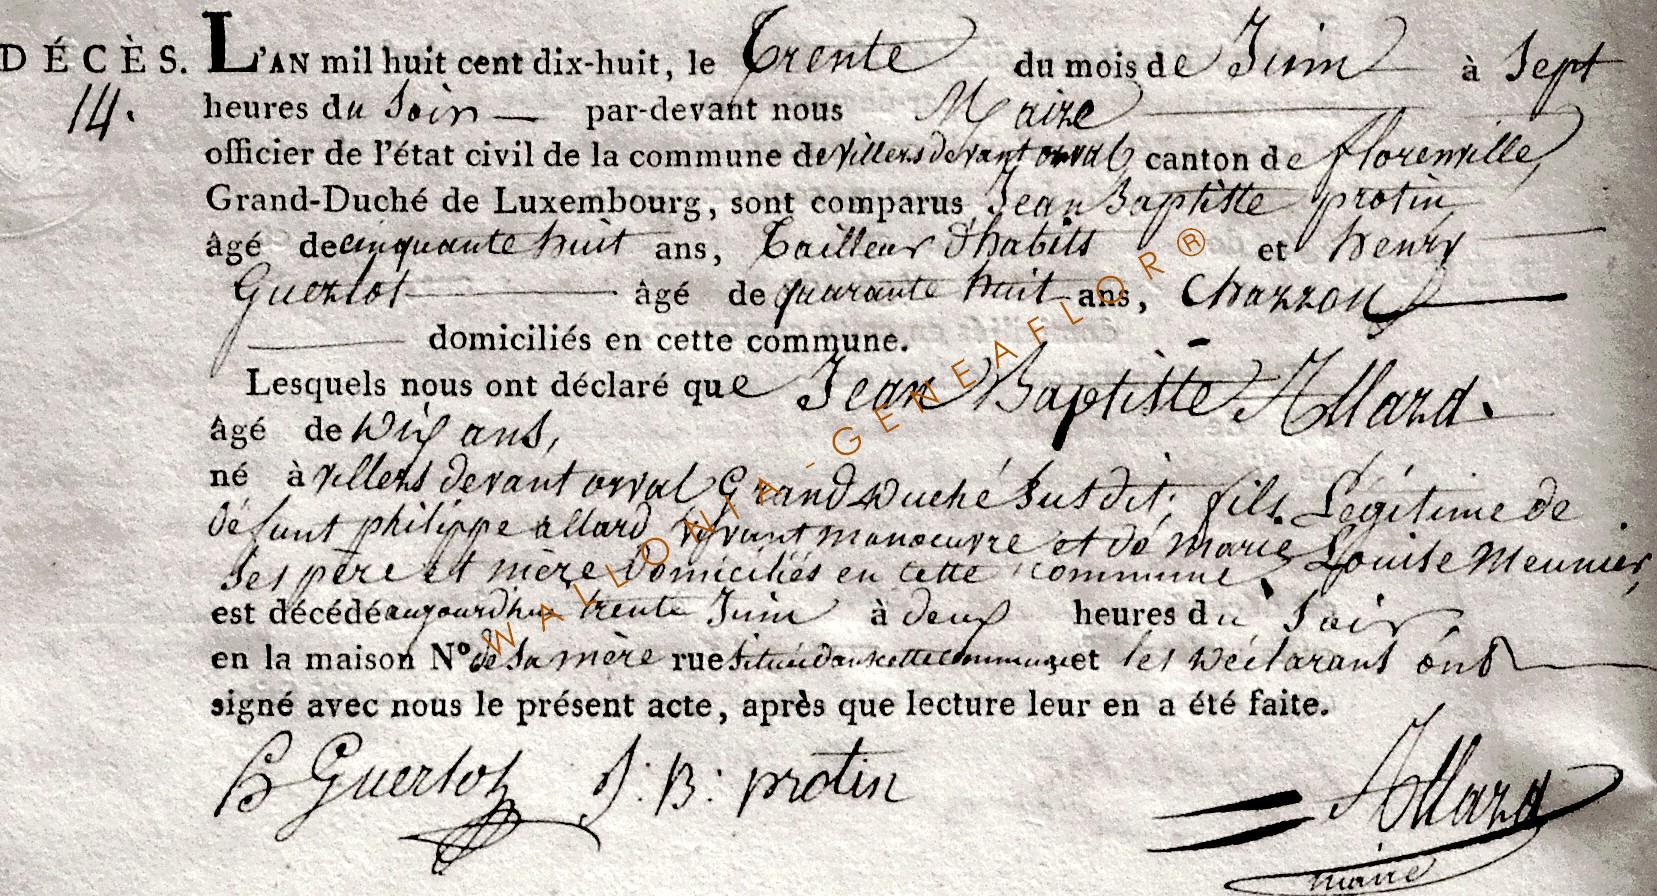 DÉCÈS. L'AN mil huit cent dix-huit, le Trente du mois de Juin à Sept
14. heures du Soir par-devant nous Maire
officier de l'état civil de la commune de villers devant orval canton de florenville,
Grand-Duché de Luxembourg, sont comparus Jean Baptiste protin
âgé de cinquante huit ans, Tailleur d'habits et henry
Guerlot âgé de quarante huit ans, Charron
domiciliés en cette commune.
Lesquels nous ont déclaré que Jean Baptiste Allard.
âgé de Dix ans,
né à villers devant orval Grand Duché Susdit, fils Légitime de
défunt philippe allard vivant manoeuvre et de marie Louise Meunier,
Ses père et mère Domiciliés en cette commune
est décédé aujourd'hui trente Juin à deux heures du Soir
en la maison N° de Sa mère rue Située dans cette commune et les Déclarans ont
signé avec nous le présent acte, après que lecture leur en a été faite.
h Guerlot J: B: protin Allard
maire
WALLONIA-GENEAFLOR®